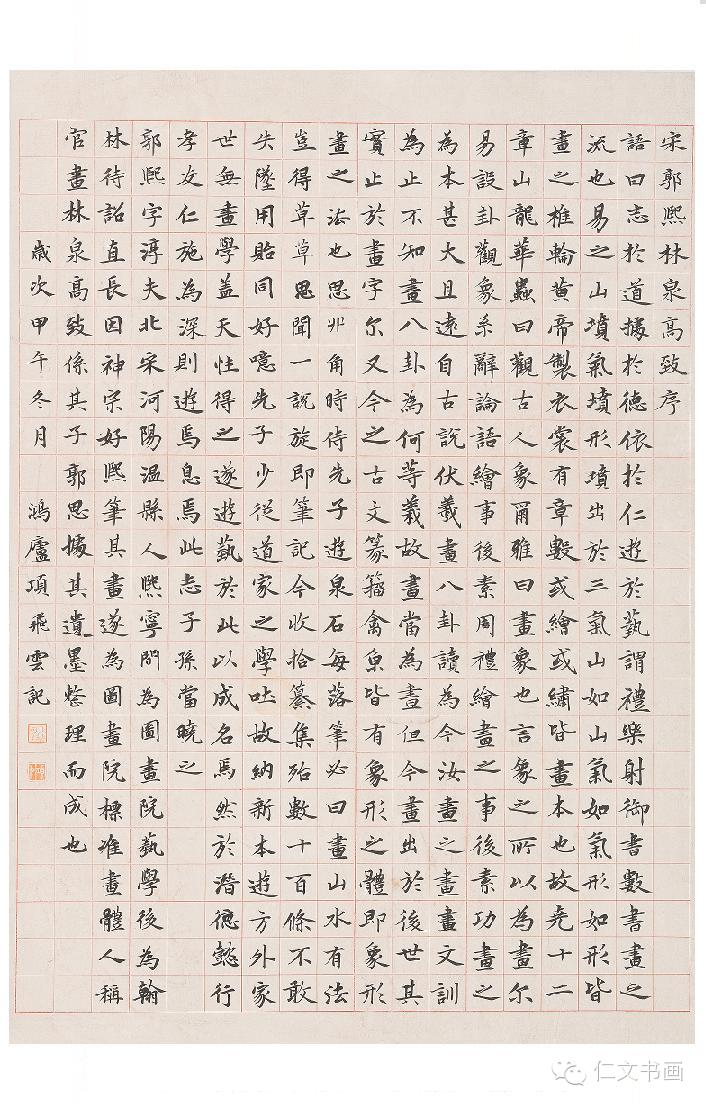 宋郭熙林泉高致序
語曰志於道據於德依於仁遊於藝謂禮樂射御書數書畫之
流也易之山墳氣墳形墳出於三氣山如山氣如氣形如形皆
畫之椎輪黄帝製衣裳有章數或繪或繡皆畫本也故堯十二
章山龍華蟲曰觀古人象爾雅曰畫象也言象之所以為畫尔
易設卦觀象系辭論語繪事後素周禮繪畫之事後素功畫之
為本甚大且遠自古說伏羲畫八卦讀為今汝畫之畫文訓
為止不知畫八卦為何等義故畫當為畫但今畫出於後世其
實止於畫字尔又今之古文篆籀禽魚皆有象形之體即象形
畫之法也思丱角時侍先子遊泉石每落筆必曰畫山水有法
豈得草草思聞一說旋即筆記今收拾纂集殆數十百條不敢
失墜用貽同好噫先子少從道家之學吐故納新本遊方外家
世無畫學盖天性得之遂遊藝於此以成名焉然於潛德懿行
孝友仁施為深則遊焉息焉此志子孫當曉之
郭熙字淳夫北宋河陽溫縣人熙寧間為圖畫院藝學後為翰
林待詔直長因神宗好熙筆其畫遂為圖畫院標准畫體人稱
官畫林泉高致係其子郭思據其遺墨整理而成也
歲次甲午冬月 鴻廬項飛雲記
仁文书画